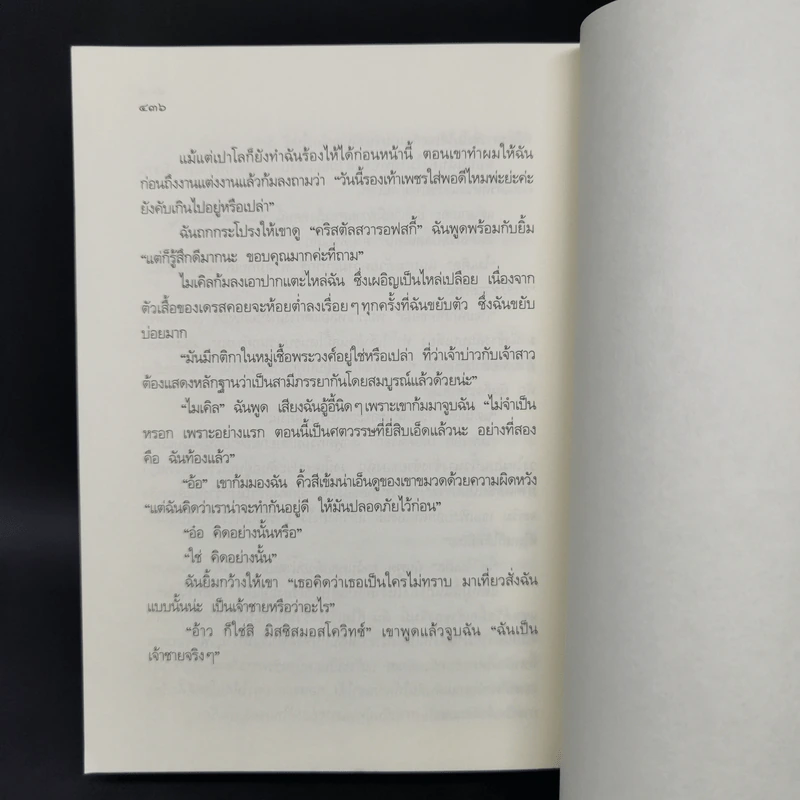 ๔๓๖
แม้แต่เปาโลก็ยังทำฉันร้องไห้ได้ก่อนหน้านี้ ตอนเขาทำผมให้ฉัน
ก่อนถึงงานแต่งงานแล้วก้มลงถามว่า “วันนี้รองเท้าเพชรใส่พอดีไหมพ่ะย่ะค่ะ
ยังคับเกินไปอยู่หรือเปล่า”
ฉันถกกระโปรงให้เขาดู “คริสตัลสวารอฟสกี้” ฉันพูดพร้อมกับยิ้ม
“แต่ก็รู้สึกดีมากนะ ขอบคุณมากค่ะที่ถาม”
ไมเคิลก้มลงเอาปากแตะไหล่ฉัน ซึ่งเผอิญเป็นไหล่เปลือย เนื่องจาก
ตัวเสื้อของเดรสคอยจะห้อยต่ำลงเรื่อยๆ ทุกครั้งที่ฉันขยับตัว ซึ่งฉันขยับ
บ่อยมาก
“มันมีกติกาในหมู่เชื้อพระวงศ์อยู่ใช่หรือเปล่า ที่ว่าเจ้าบ่าวกับเจ้าสาว
ต้องแสดงหลักฐานว่าเป็นสามีภรรยากันโดยสมบูรณ์แล้วด้วยน่ะ”
“ไมเคิล” ฉันพูด เสียงฉันอู้อี้นิดๆ เพราะเขาก้มมาจูบฉัน “ไม่จำเป็น
หรอก เพราะอย่างแรก ตอนนี้เป็นศตวรรษที่ยี่สิบเอ็ดแล้วนะ อย่างที่สอง
คือ ฉันท้องแล้ว”
“อ้อ” เขาก้มมองฉัน คิ้วสีเข้มน่าเอ็นดูของเขาขมวดด้วยความผิดหวัง
“แต่ฉันคิดว่าเราน่าจะทำกันอยู่ดี ให้มันปลอดภัยไว้ก่อน”
“อ๋อ คิดอย่างนั้นหรือ”
“ใช่ คิดอย่างนั้น”
ฉันยิ้มกว้างให้เขา “เธอคิดว่าเธอเป็นใครไม่ทราบ มาเที่ยวสั่งฉัน
แบบนั้นน่ะ เป็นเจ้าชายหรือว่าอะไร”
“อ้าว ก็ใช่สิ มิสซิสมอสโควิทซ์” เขาพูดแล้วจูบฉัน “ฉันเป็น
เจ้าชายจริงๆ”